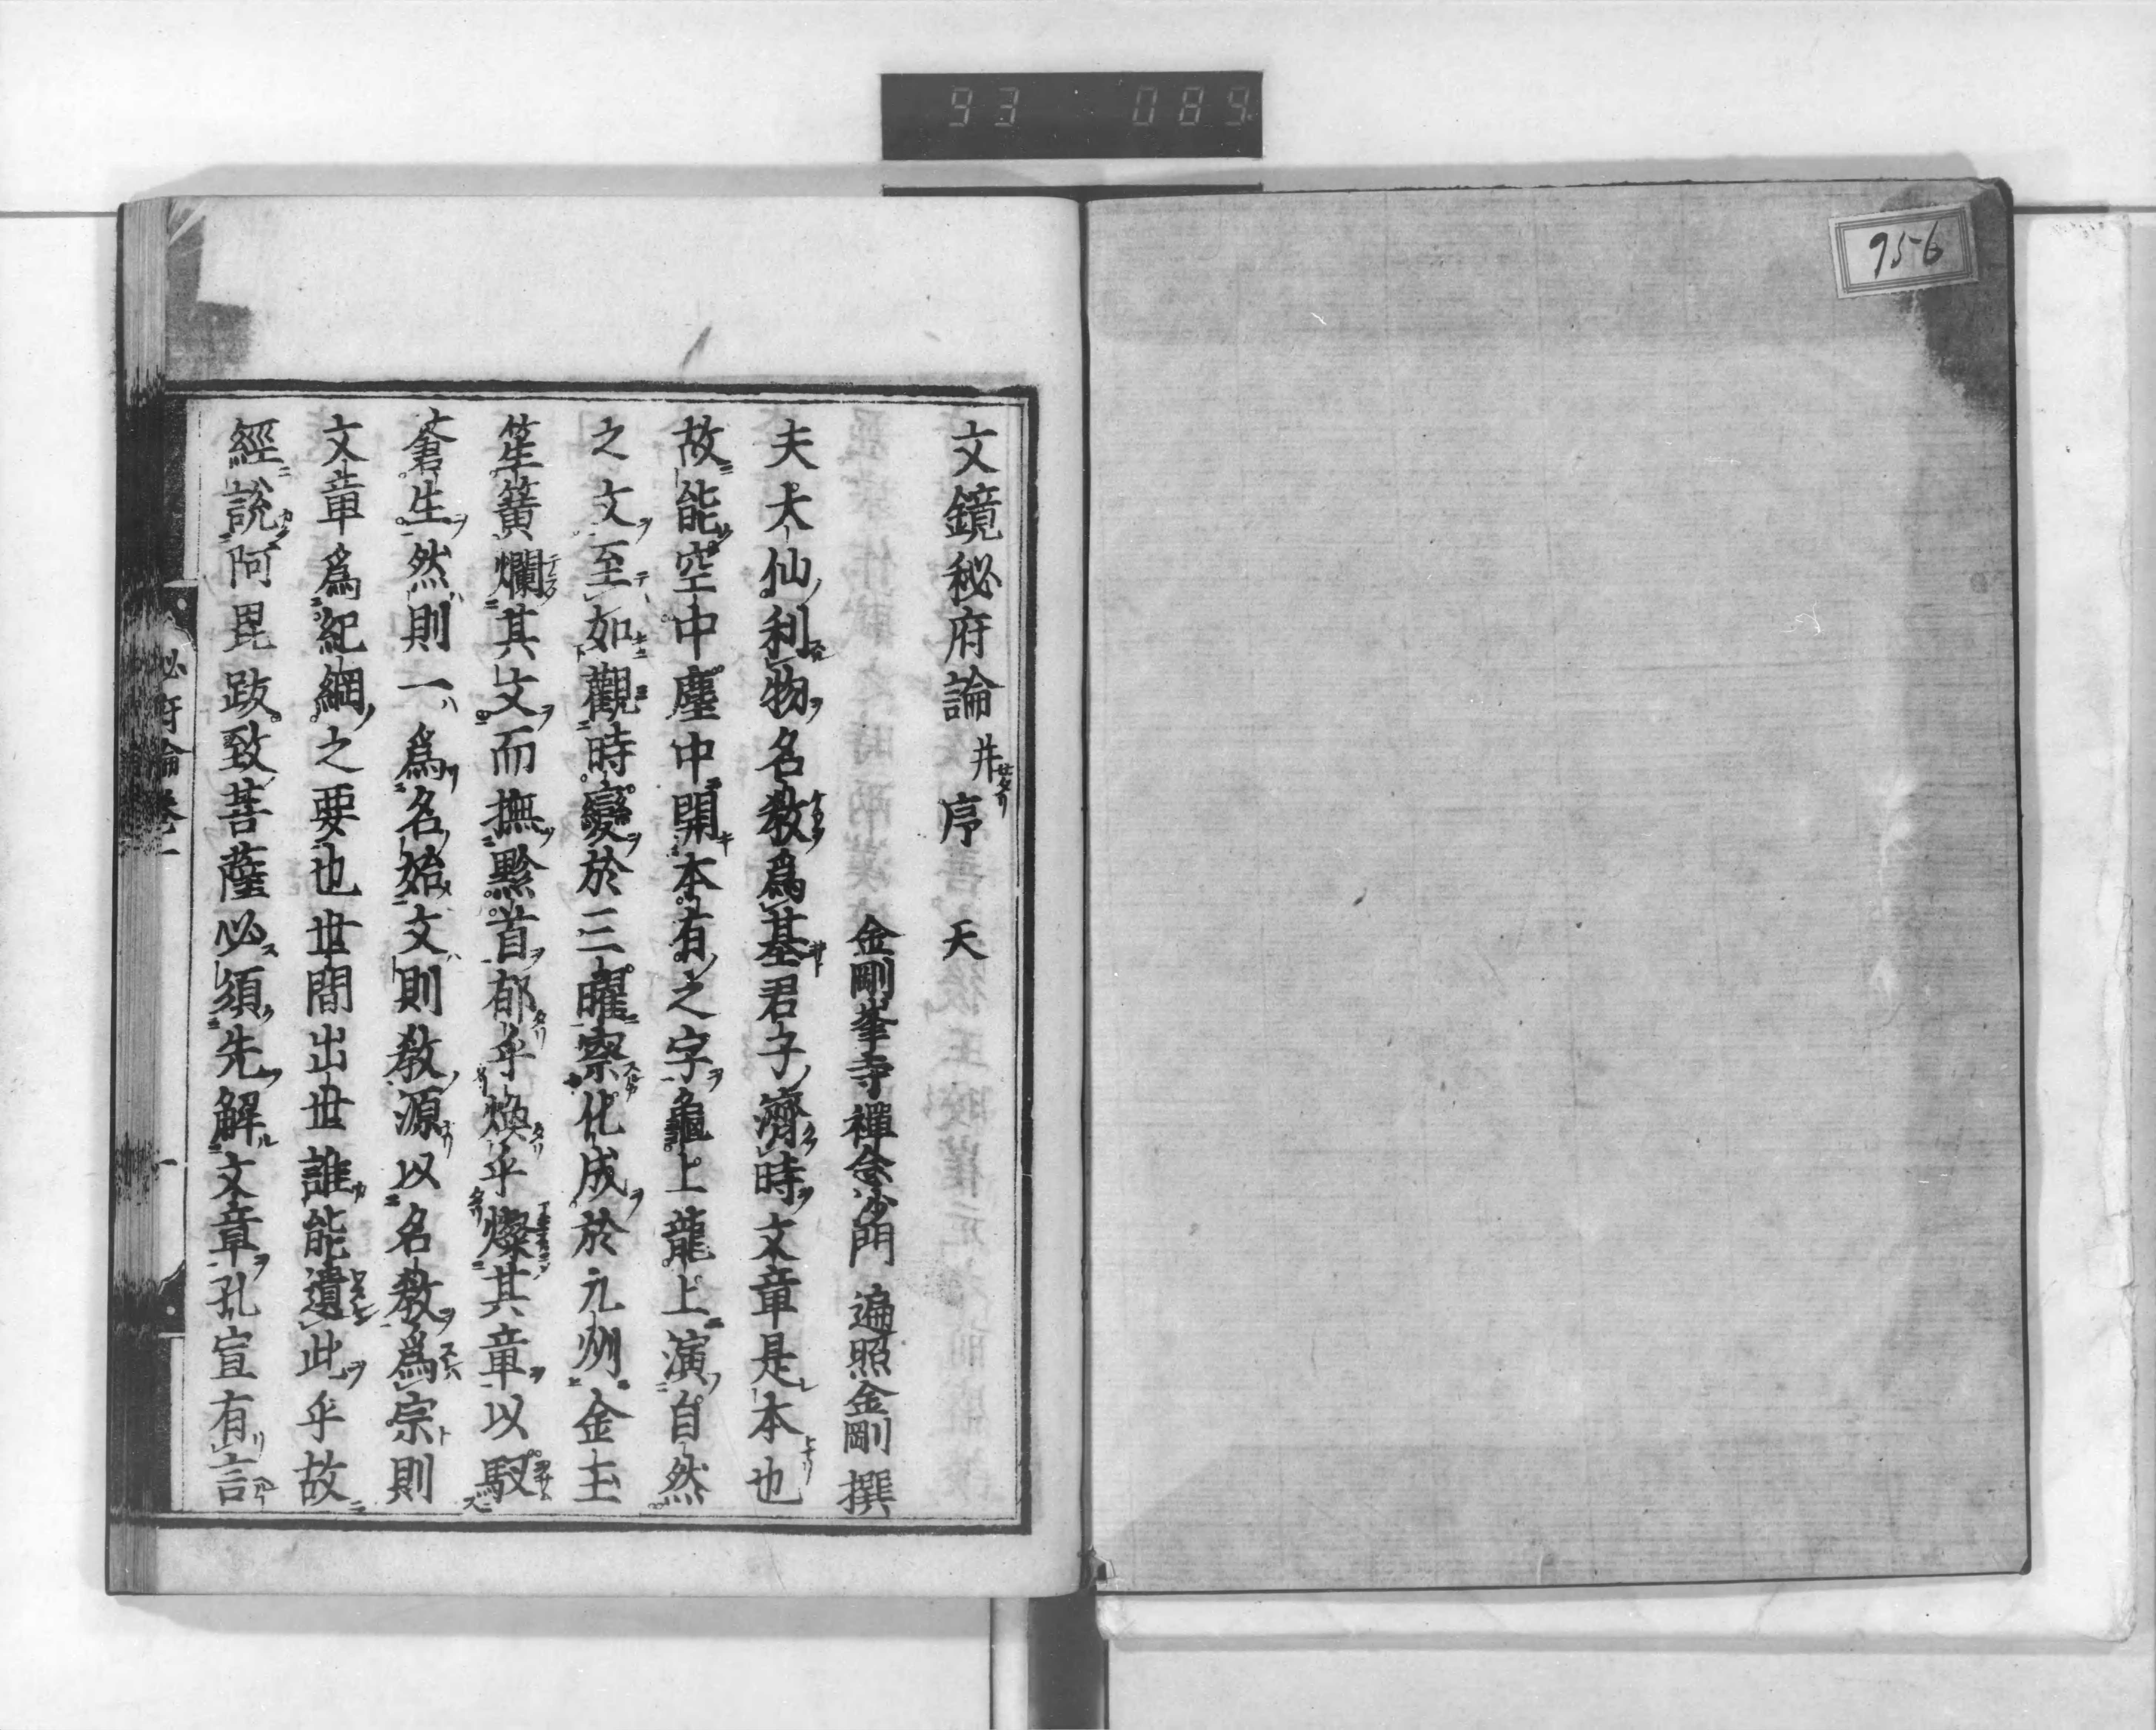 93 089
956
文鏡秘府論 并序 天
金剛峯寺禪念沙門 遍照金剛 撰
夫大仙利物名教爲基君子濟時文章是本也
故能空中塵中開本有之字龜上龍上演自然
之文至如觀時變於三曜察化成於九州金玉
笙簧爛其文而撫黔首郁乎煥乎燦其章以馭
蒼生然則一爲名始文則教源以名教爲宗則
文章爲紀綱之要也世間出世誰能遺此乎故
經説阿毘跋致菩薩必須先解文章孔宣有言
秘府論 卷一
一